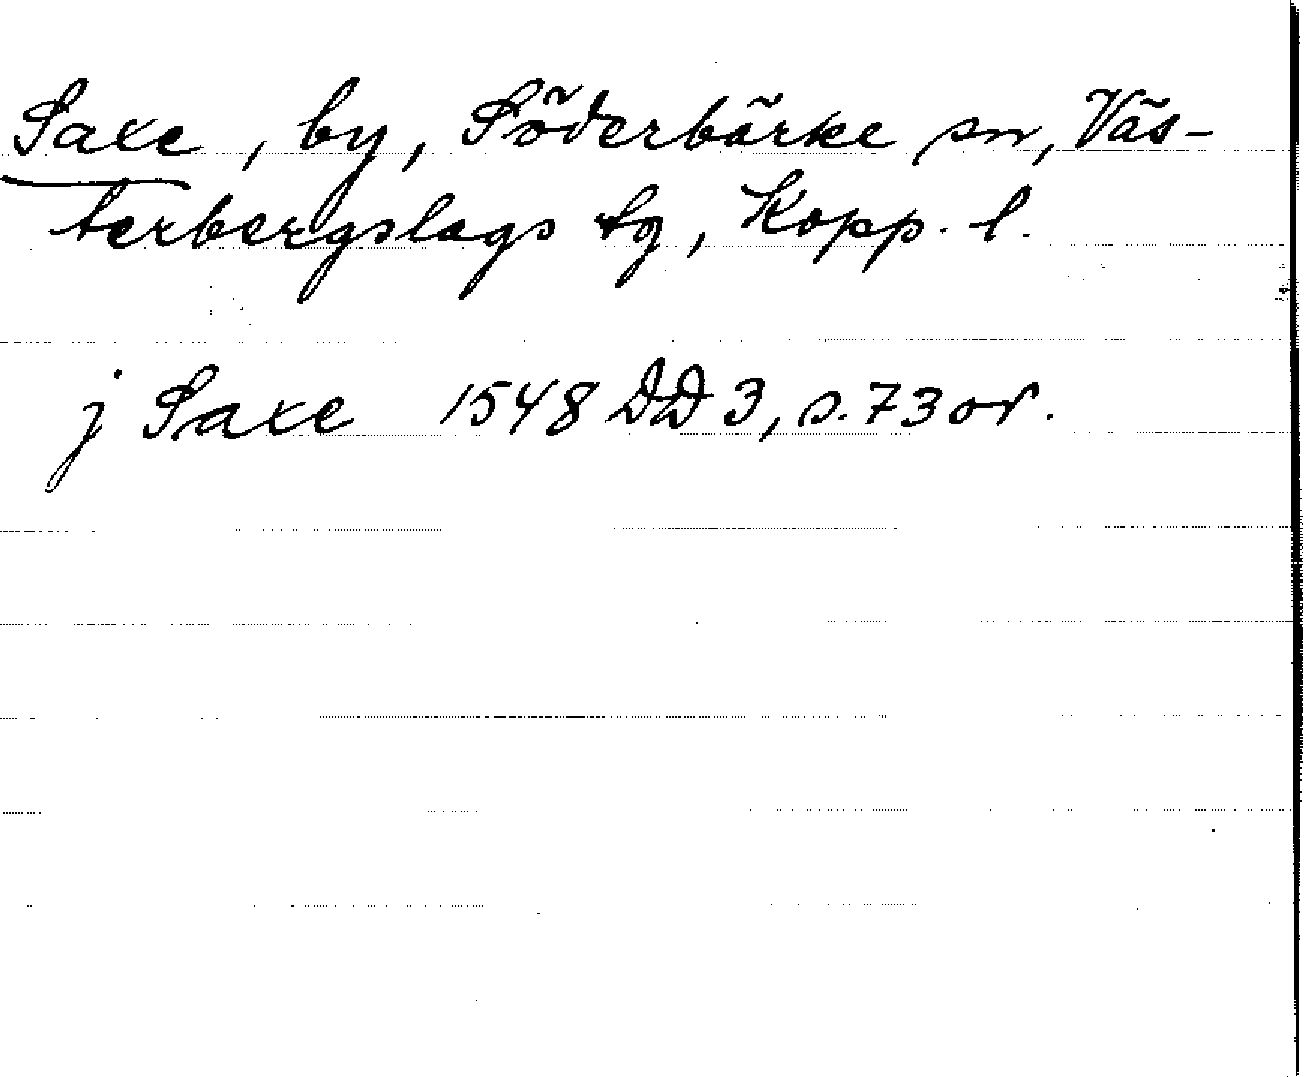 Saxe, by, Söderbärke sn, Väs-
terbergslags tg, Kopp. l.
j Saxe 1548 DD 3, s. 73 or.